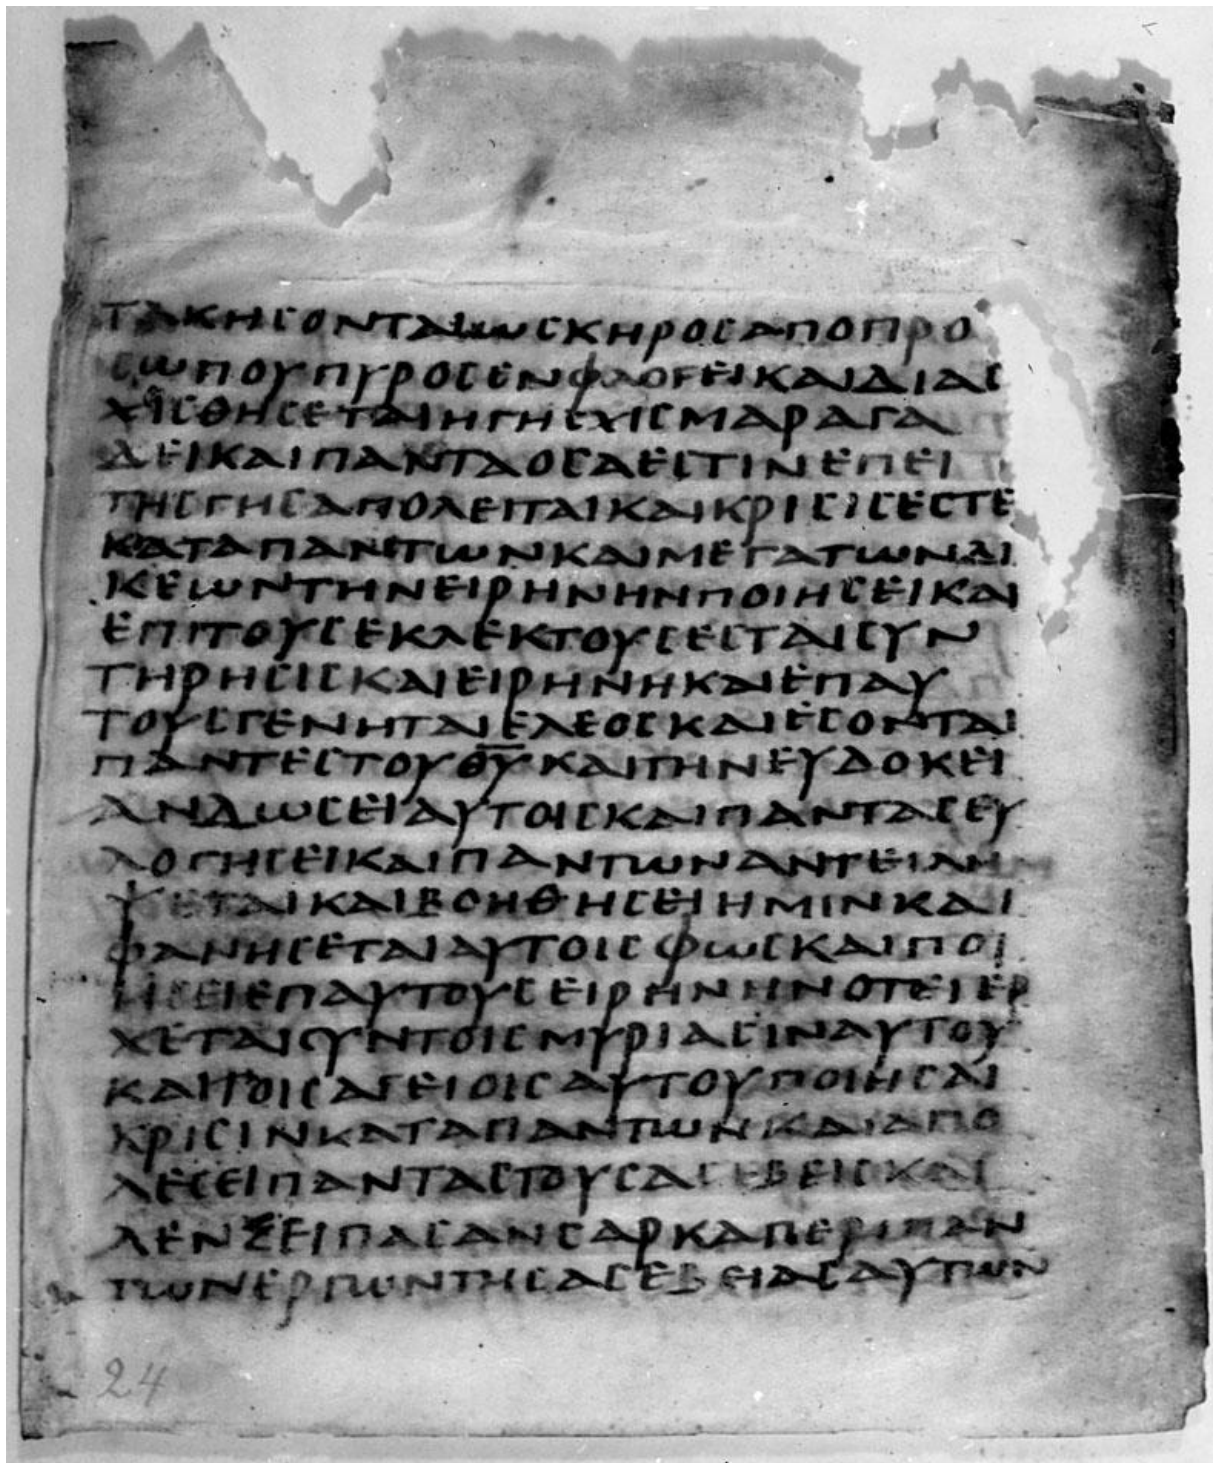 ΤΑΚΗCΟΝΤΑΙΩCΚΗΡΟCΑΠΟΠΡΟ
CΩΠΟΥΠΥΡΟCΕΝΦΛΟΓΕΙΚΑΙΔΙΑC
ΧΙCΘΗCΕΤΑΙΗΓΗCΧΙCΜΑΡΑΓΑ
ΔΕΙΚΑΙΠΑΝΤΑΟCΑΕCΤΙΝΕΠΕΙ
ΤΗCΓΗCΑΠΟΛΕΙΤΑΙΚΑΙΚΡΙCΙCΕCΤΕ
ΚΑΤΑΠΑΝΤΩΝΚΑΙΜΕΤΑΤΩΝΔΙ
ΚΕΩΝΤΗΝΕΙΡΗΝΗΝΠΟΙΗCΕΙΚΑΙ
ΕΠΙΤΟΥCΕΚΛΕΚΤΟΥCΕCΤΑΙCΥΝ
ΤΗΡΗCΙCΚΑΙΕΙΡΗΝΗΚΑΙΕΠΑΥ
ΤΟΥCΓΕΝΗΤΑΙΕΛΕΟCΚΑΙΕCΟΝΤΑΙ
ΠΑΝΤΕCΤΟΥΘ̅Υ̅ΚΑΙΤΗΝΕΥΔΟΚΕΙ
ΑΝΔΩCΕΙΑΥΤΟΙCΚΑΙΠΑΝΤΑCΕΥ
ΛΟΓΗCΕΙΚΑΙΠΑΝΤΩΝΑΝΤΕΙΛΗΜ
ΨΕΤΑΙΚΑΙΒΟΗΘΗCΕΙΗΜΙΝΚΑΙ
ΦΑΝΗCΕΤΑΙΑΥΤΟΙCΦΩCΚΑΙΠΟΙ
ΗCΕΙΕΠΑΥΤΟΥCΕΙΡΗΝΗΝΟΤΕΙΕΡ
ΧΕΤΑΙCΥΝΤΟΙCΜΥΡΙΑCΙΝΑΥΤΟΥ
ΚΑΙΤΟΙCΑΓΕΙΟΙCΑΥΤΟΥΠΟΙΗCΑΙ
ΚΡΙCΙΝΚΑΤΑΠΑΝΤΩΝΚΑΙΑΠΟ
ΛΕCΕΙΠΑΝΤΑCΤΟΥCΑCΕΒΕΙCΚΑΙ
ΛΕΝΞΕΙΠΑCΑΝCΑΡΚΑΠΕΡΙΠΑΝ
ΤΩΝΕΡΓΩΝΤΗCΑCΕΒΕΙΑCΑΥΤΩΝ
24